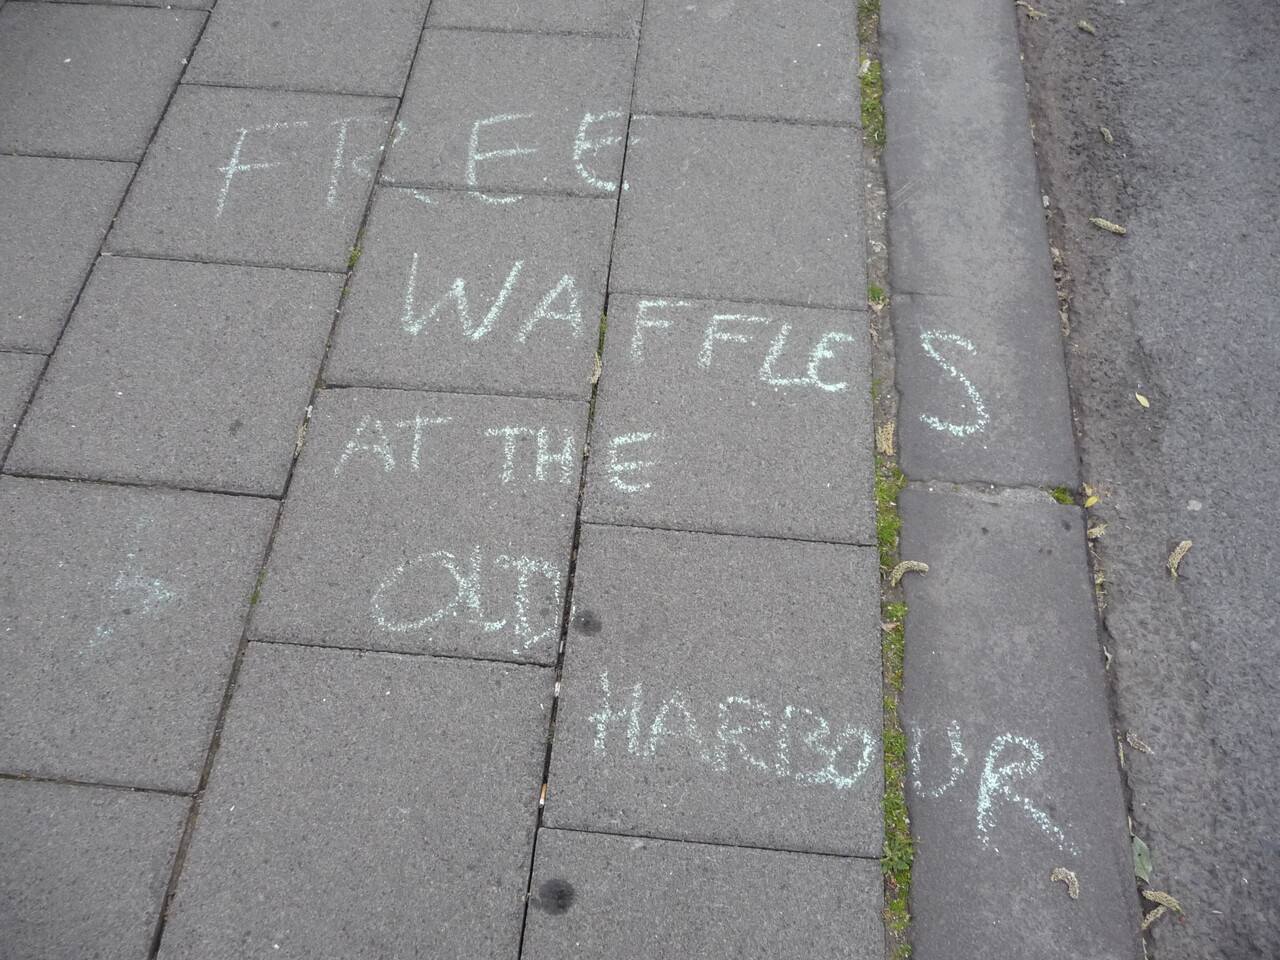 FREE
WAFFLES
AT THE
OLD
HARBOUR